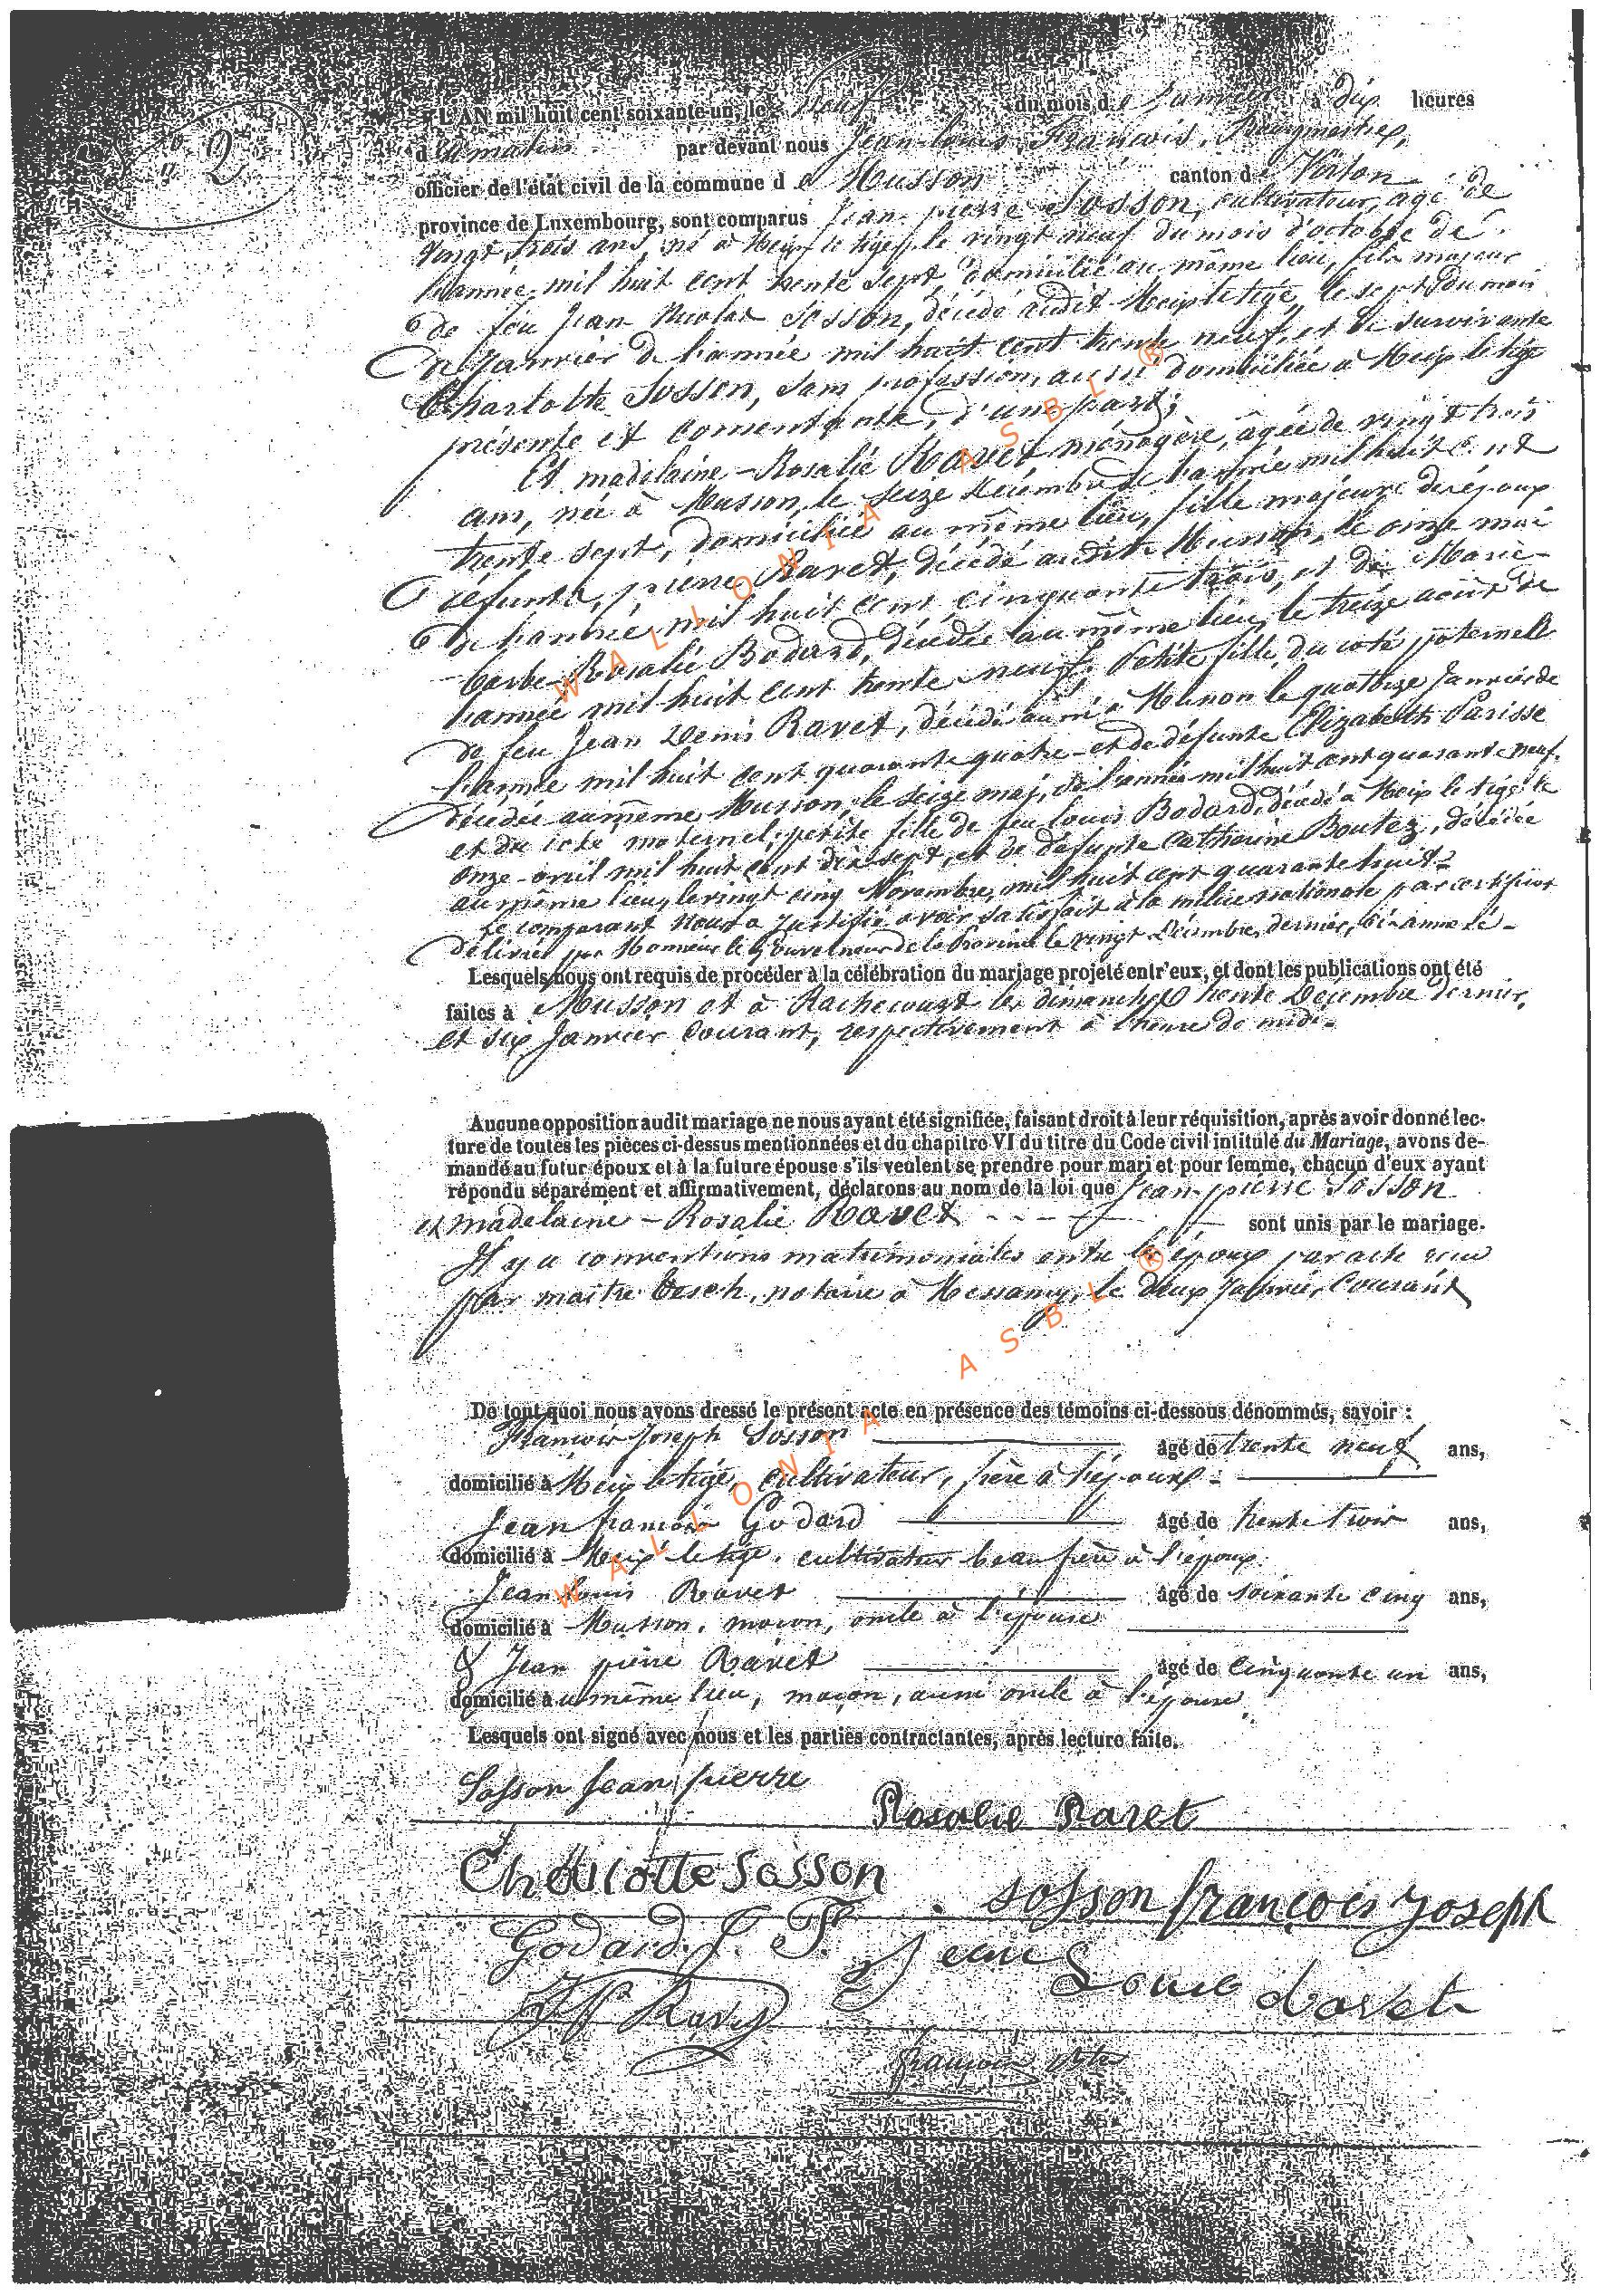 n° 2
L'AN mil huit cent soixante-un, le neuf du mois de Janvier à dix heures
du matin par devant nous Jean-Louis François, Bourgmestre,
officier de l'état civil de la commune de Musson canton de Virton
province de Luxembourg, sont comparus Jean-pierre Sosson, cultivateur, agé de
vingt trois ans, né à Meix le tige, le vingt neuf du mois d'octobre de
l'année mil huit cent trente sept, domicilié au même lieu, fils majeur
de feu Jean Nicolas Sosson, décédé audit Meix le tige, le sept du mois
de Janvier de l'année mil huit cent trente neuf, et de survivante
Charlotte Sosson, sans profession, aussi domiciliée à Meix le tige
présente et consentante, d'une part;
Et madelaine-Rosalie Ravet ménagère, âgée de vingt trois
ans, née à Musson, le seize décembre de l'année mil huit cent
trente sept, domiciliée au même lieu, fille majeure des époux
défunts, pierre Ravet, décédé audit Musson, le onze mai
de l'année mil huit cent cinquante trois, et de Marie-
barbe-Rosalie Bodard, décédée au même lieu, le treize août de
l'année mil huit cent trente neuf. Petite fille du coté paternelle
de feu Jean Denis Ravet, décédé à Musson le quatorze Janvier de
l'année mil huit cent quarante quatre et de défunte Elizabeth Parisse
décédée au même Musson, le seize mai, de l'année mil huit cent quarante neuf.
et du coté maternel, petite fille de feu Louis Bodard, décédé à Meix le tige, le
onze avril mil huit cent dix sept, et de défunte Catherine Boutez, décédée
au même lieu, le vingt cinq Novembre, mil huit cent quarante huit.
Le comparant nous a justifié avoir satisfait à la milice nationale par certificat
délivré par Monsieur le Gouverneur de la Province le vingt Décembre dernier, ci-annexé.
Lesquels nous ont requis de procéder à la célébration du mariage projeté entr'eux, et dont les publications ont été
faites à Musson et à Rachecourt les dimanches trente Décembre dernier,
et six Janvier Courant, respectivement à l'heure de midi.
Aucune opposition audit mariage ne nous ayant été signifiée, faisant droit à leur réquisition, après avoir donné lec-
ture de toutes les pièces ci-dessus mentionnées et du chapitre VI du titre du Code civil intitulé du Mariage, avons de-
mandé au futur époux et à la future épouse s'ils veulent se prendre pour mari et pour femme, chacun d'eux ayant
répondu séparément et affirmativement, déclarons au nom de la loi que Jean-pierre Sosson
et madelaine-Rosalie Ravet sont unis par le mariage.
Il y a conventions matrimoniales entre les époux par acte reçu
par maitre Oesch, notaire à Messancy, le deux Janvier Courant
De tout quoi nous avons dressé le présent acte en présence des témoins ci-dessous dénommés, savoir :
François Joseph Sosson âgé de trente neuf ans,
domicilié à Meix le tige, cultivateur, frère à l'époux.
Jean françois Godard âgé de trente trois ans,
domicilié à Meix le tige, cultivateur beau frère à l'époux.
Jean Louis Ravet âgé de soixante cinq ans,
domicilié à Musson, maçon, oncle à l'épouse
& Jean pierre Ravet âgé de cinquante un ans,
domicilié au même lieu, maçon, aussi oncle à l'épouse.
Lesquels ont signé avec nous et les parties contractantes, après lecture faite.
Sosson Jean pierre
Rosalie Ravet
Charlotte Sosson
sosson françois Joseph
Godard. J. F.
Jean Louis Ravet
JP Ravet
françois
WALLONIA ASBL ®
WALLONIA ASBL ®